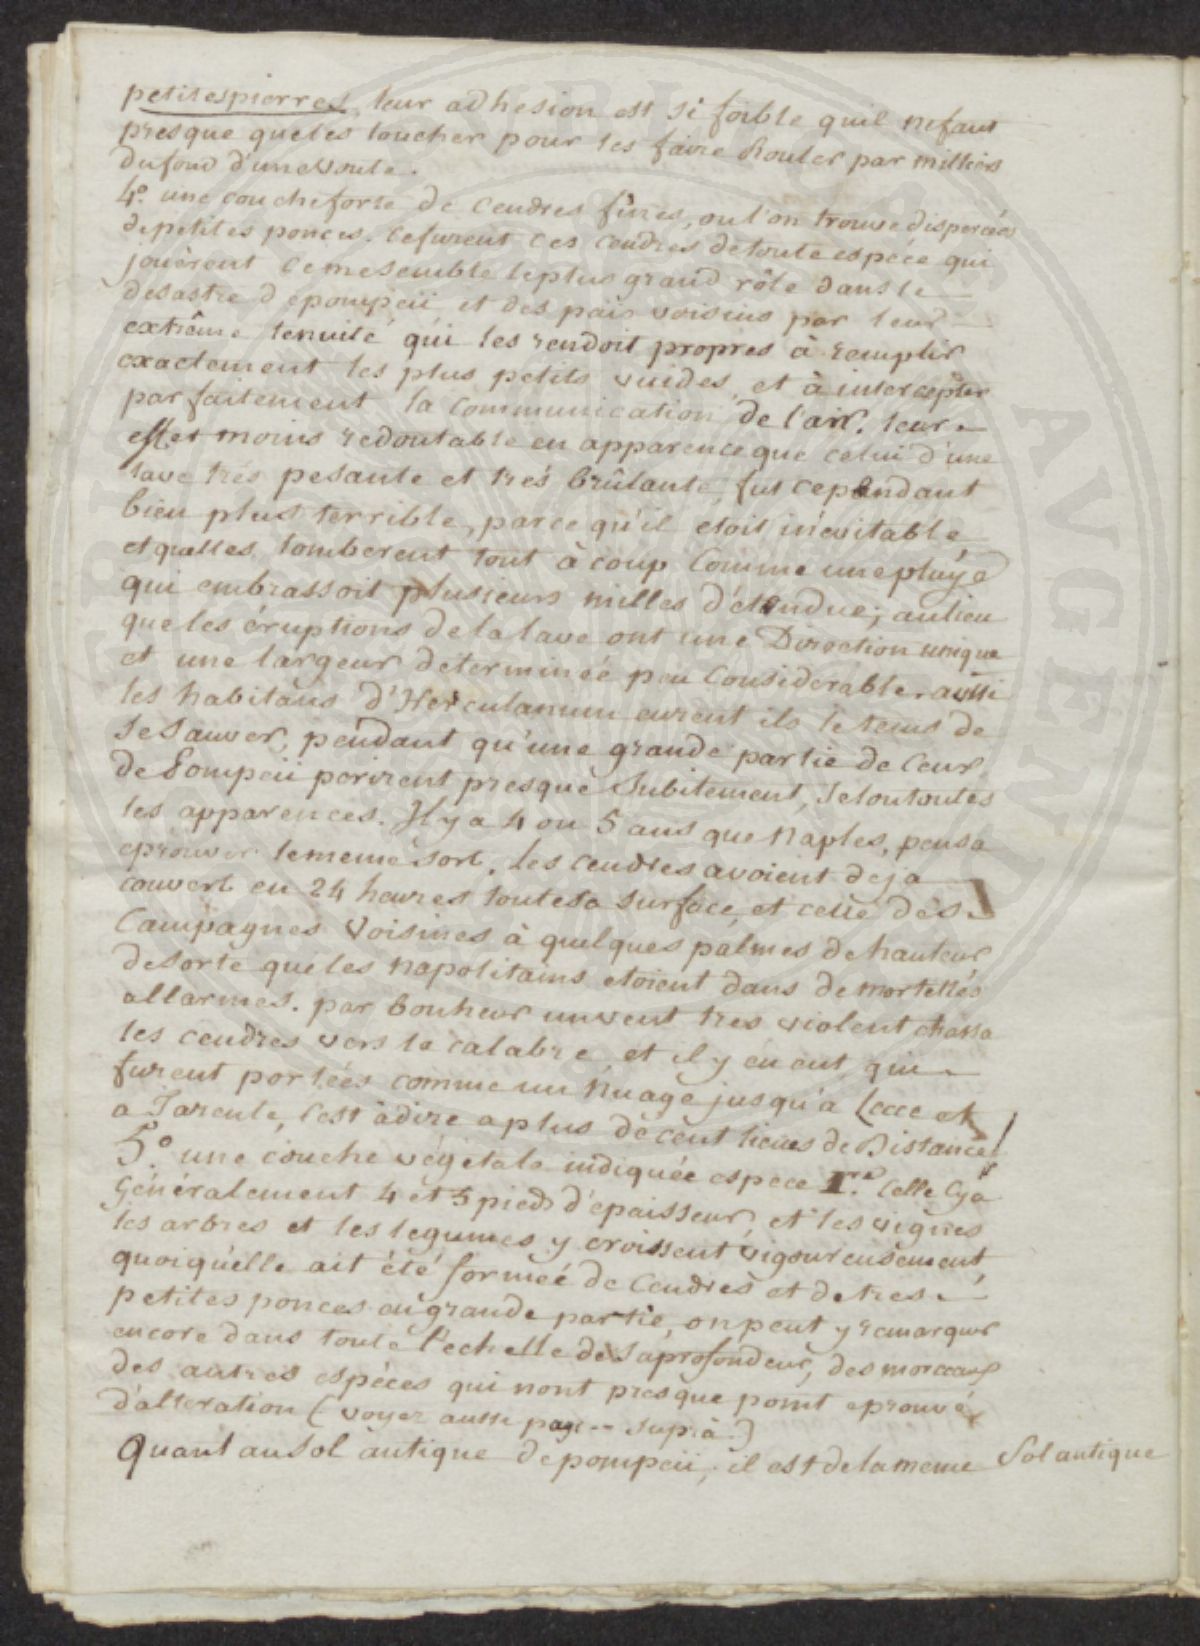 petitespierres, leur adhesion est si foible quil nefaut
presque queles toucher pour les faire Router par milliers
dufond d'unevoute.
4º. une coucheforte de Cendres fines, ou l'on trouve dispersées
depetites ponces. cefurent ces cendres detoute espéce qui
jouèrent cemesemble leplus grand rôle dansle
desastre depompeii, et des païs voisins par leur
extrême tenuité qui les rendoit propres à remplir
exactement les plus petits vuides, et à intercepter
parfaitement la communication de l'air. leur
effet moins redoutable en apparence que celui d'une
lave trés pesante et trés brûlante, fut cependant
bien plus terrible, parce qu'il etoit inévitable
et qualles tomberent tout à coup Comme unepluye
qui embrassoit plusieurs milles d'étendue; aulieu
queles éruptions delalave ont une Direction unique
et une largeur déterminée peu Considerable. aussi
les habitans d'Herculanum eurent ils le tems de
seSauver, pendant qu'une grande partie de ceux
de Pompeii perirent presque Subitement, selontoutes
les apparences. Ilya 4 ou 5 ans que Naples, pensa
eprouver lememe sort. les cendres avoient deja
couvert en 24 heures toutesa surface, et celle des
Campagnes Voisines à quelques palmes dehauteur
desorte queles Napolitains etoient dans demortelles
allarmes. par bonheur unvent tres violent chassa
les cendres vers la calabre et il y en eut qui
furent portées comme un Nuage jusqu'à Lecce et
a Tarente, c'est àdire a plus de cent lieues de Distance!
5º. une couche végétale indiquée espece Iʳᵉ. Celle Cya
Généralement 4 et 5 pieds d'épaisseur, et les vignes
les arbres et les legumes y croissent vigoureusement,
quoiqu'elle ait été formée de Cendres et detres
petites ponces engrande partie, onpeut y remarquer
encore dans toute l'echelle de saprofondeur, des morceaux
des autres espéces qui nont presque point eprouvé
d'alteration (voyez aussi page -- suprà)
Quant auSol antique depompeii, il est delameme
Sol antique